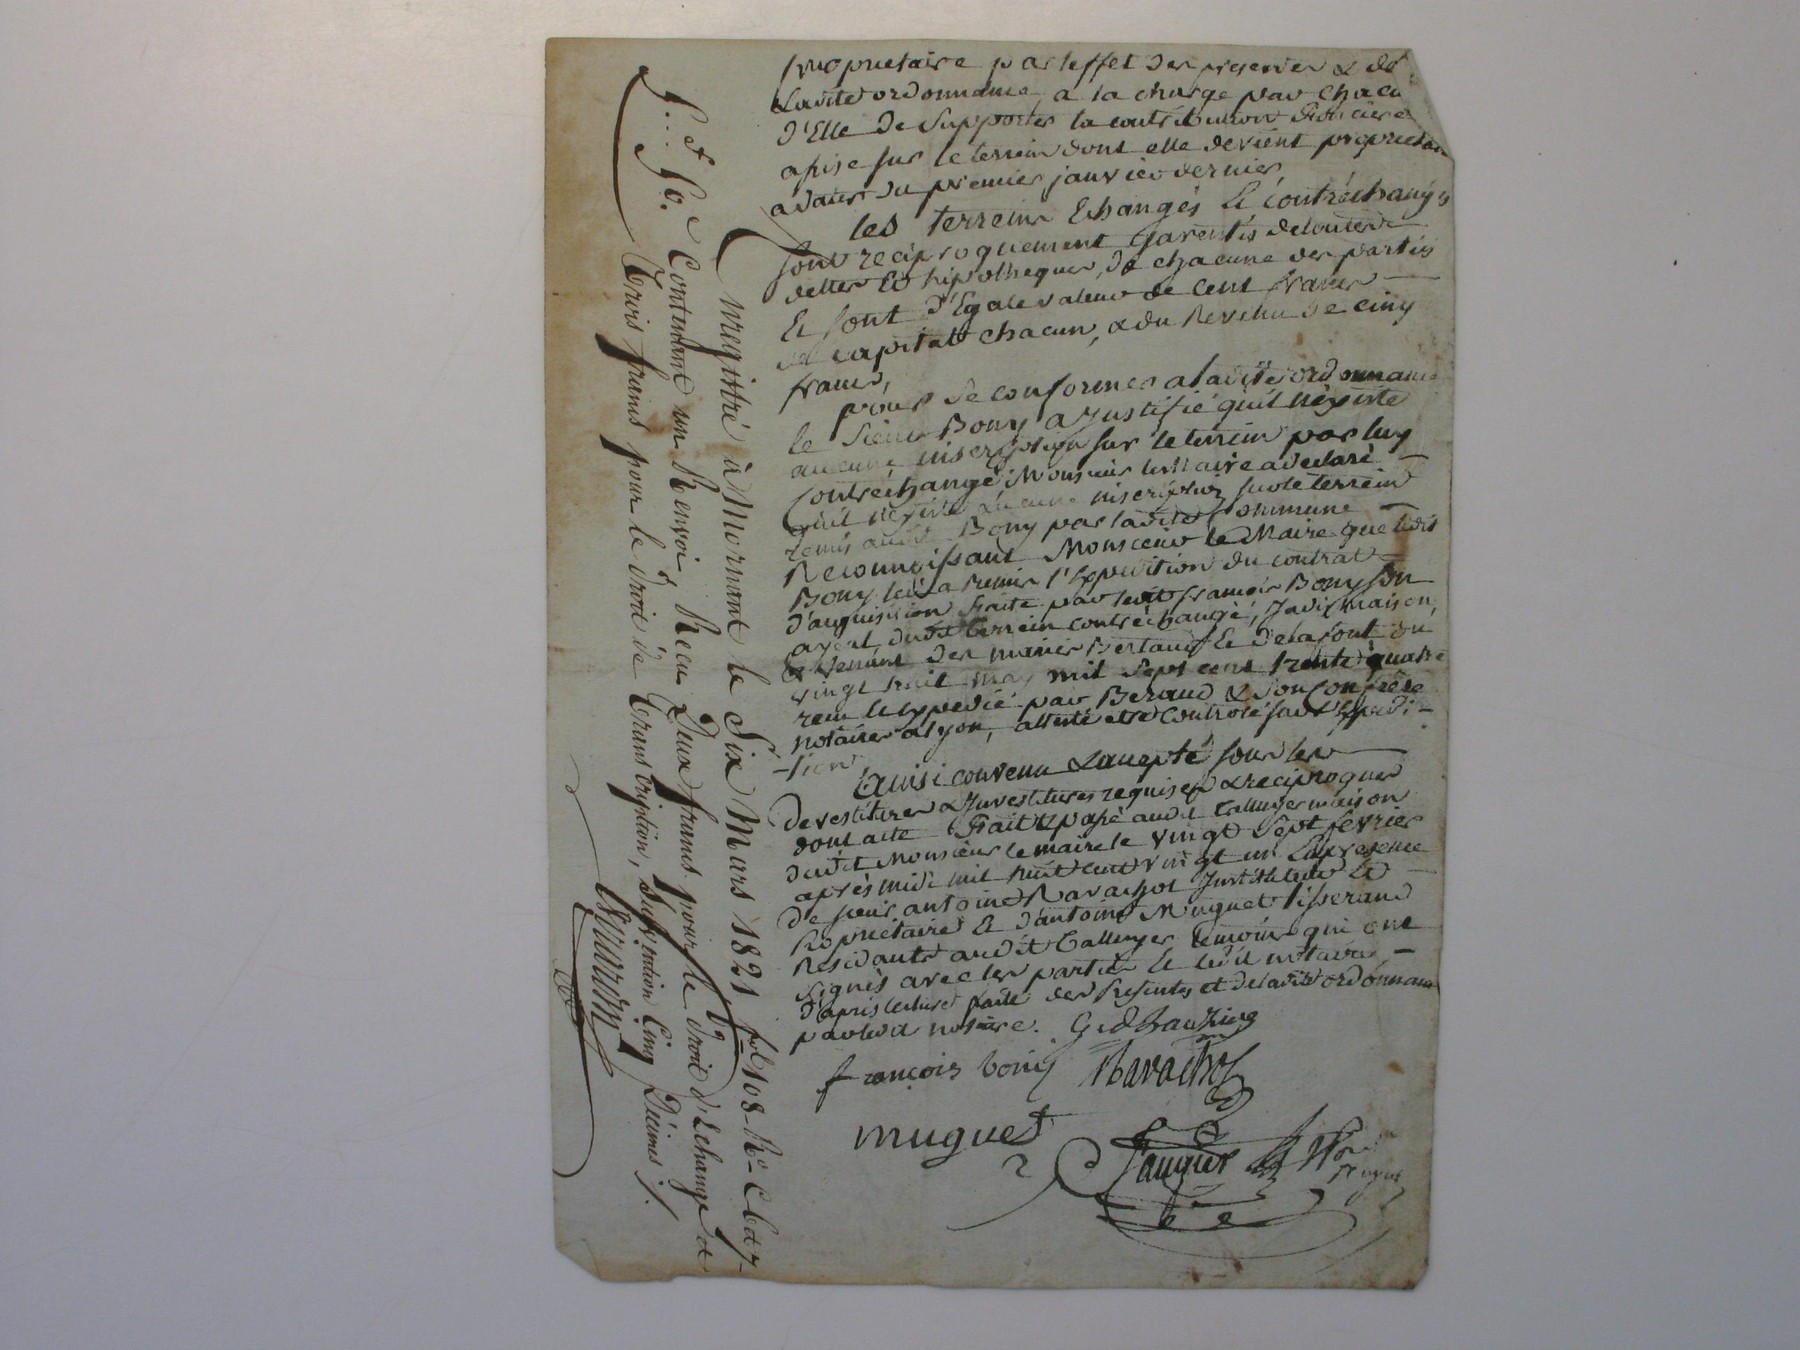 propriétaire par leffet des presentes & de
Ladite ordonnance, a la charge par chacu
d'Elle de Supporter la contribution fonciere
assise sur le terrein dont elle devient propriétaire
a dater du premier janvier dernier,
les terrein Echangés Et contréchangés
sont reciproquement garentis de toutes
dettes Et hipotheques, de chacune des parties
Et sont d'Egale valeur de Cent francs
de capital chacun, & du Revenu de cinq
francs,
pour se conformer a ladite ordonnance
le Sieur Bony a justifié qu'il n'existe
aucune inscription sur le terrein par luy
Contréchangé Monsieur le Maire a declaré
qu'il n'existe aucune inscription sur le terrein
remis audit Bony par ladite Commune
Reconnoissant Monsieur le Maire que ledit
Bony lui a Remis l'Expedition du contrat
d'acquisition faite par ledit francois Bony son
ayeul dudit terrein contréchangé, jadis maison,
Et venant des mariés Bertaud Et Delafont du
vingt huit may mil Sept cent trente quatre
recu Et Expedié par Beraud & Son Confrere
notaires a Lyon, attesté etre Controlé sur l'Expedi-
-tion
Ainsi convenu & accepté sous les
devestitures & Investitures requises & reciproques
dont acte fait & passé audit Talluyer maison
dudit Monsieur le maire le vingt Sept fevrier
après midi mil huit cent vingt un En presence
de sieur antoine Ravachol Instituteur Et
Propriétaire Et d'antoine Muguet tisserand
Residants audit Talluyer temoins qui ont
signés avec les parties Et ledit notaire,
d'après lecture faite des Presentes et de ladite ordonnance
par ledit notaire.
françois bony Ravachol
muguet
Enregistré à Mornant le Six Mars 1821 fol 108 Ro
Contenant un Renvoi, Recu Deux francs pour le droit d'Echange &
Trois francs pour le droit de Transcription, Subvention Cinq Décimes